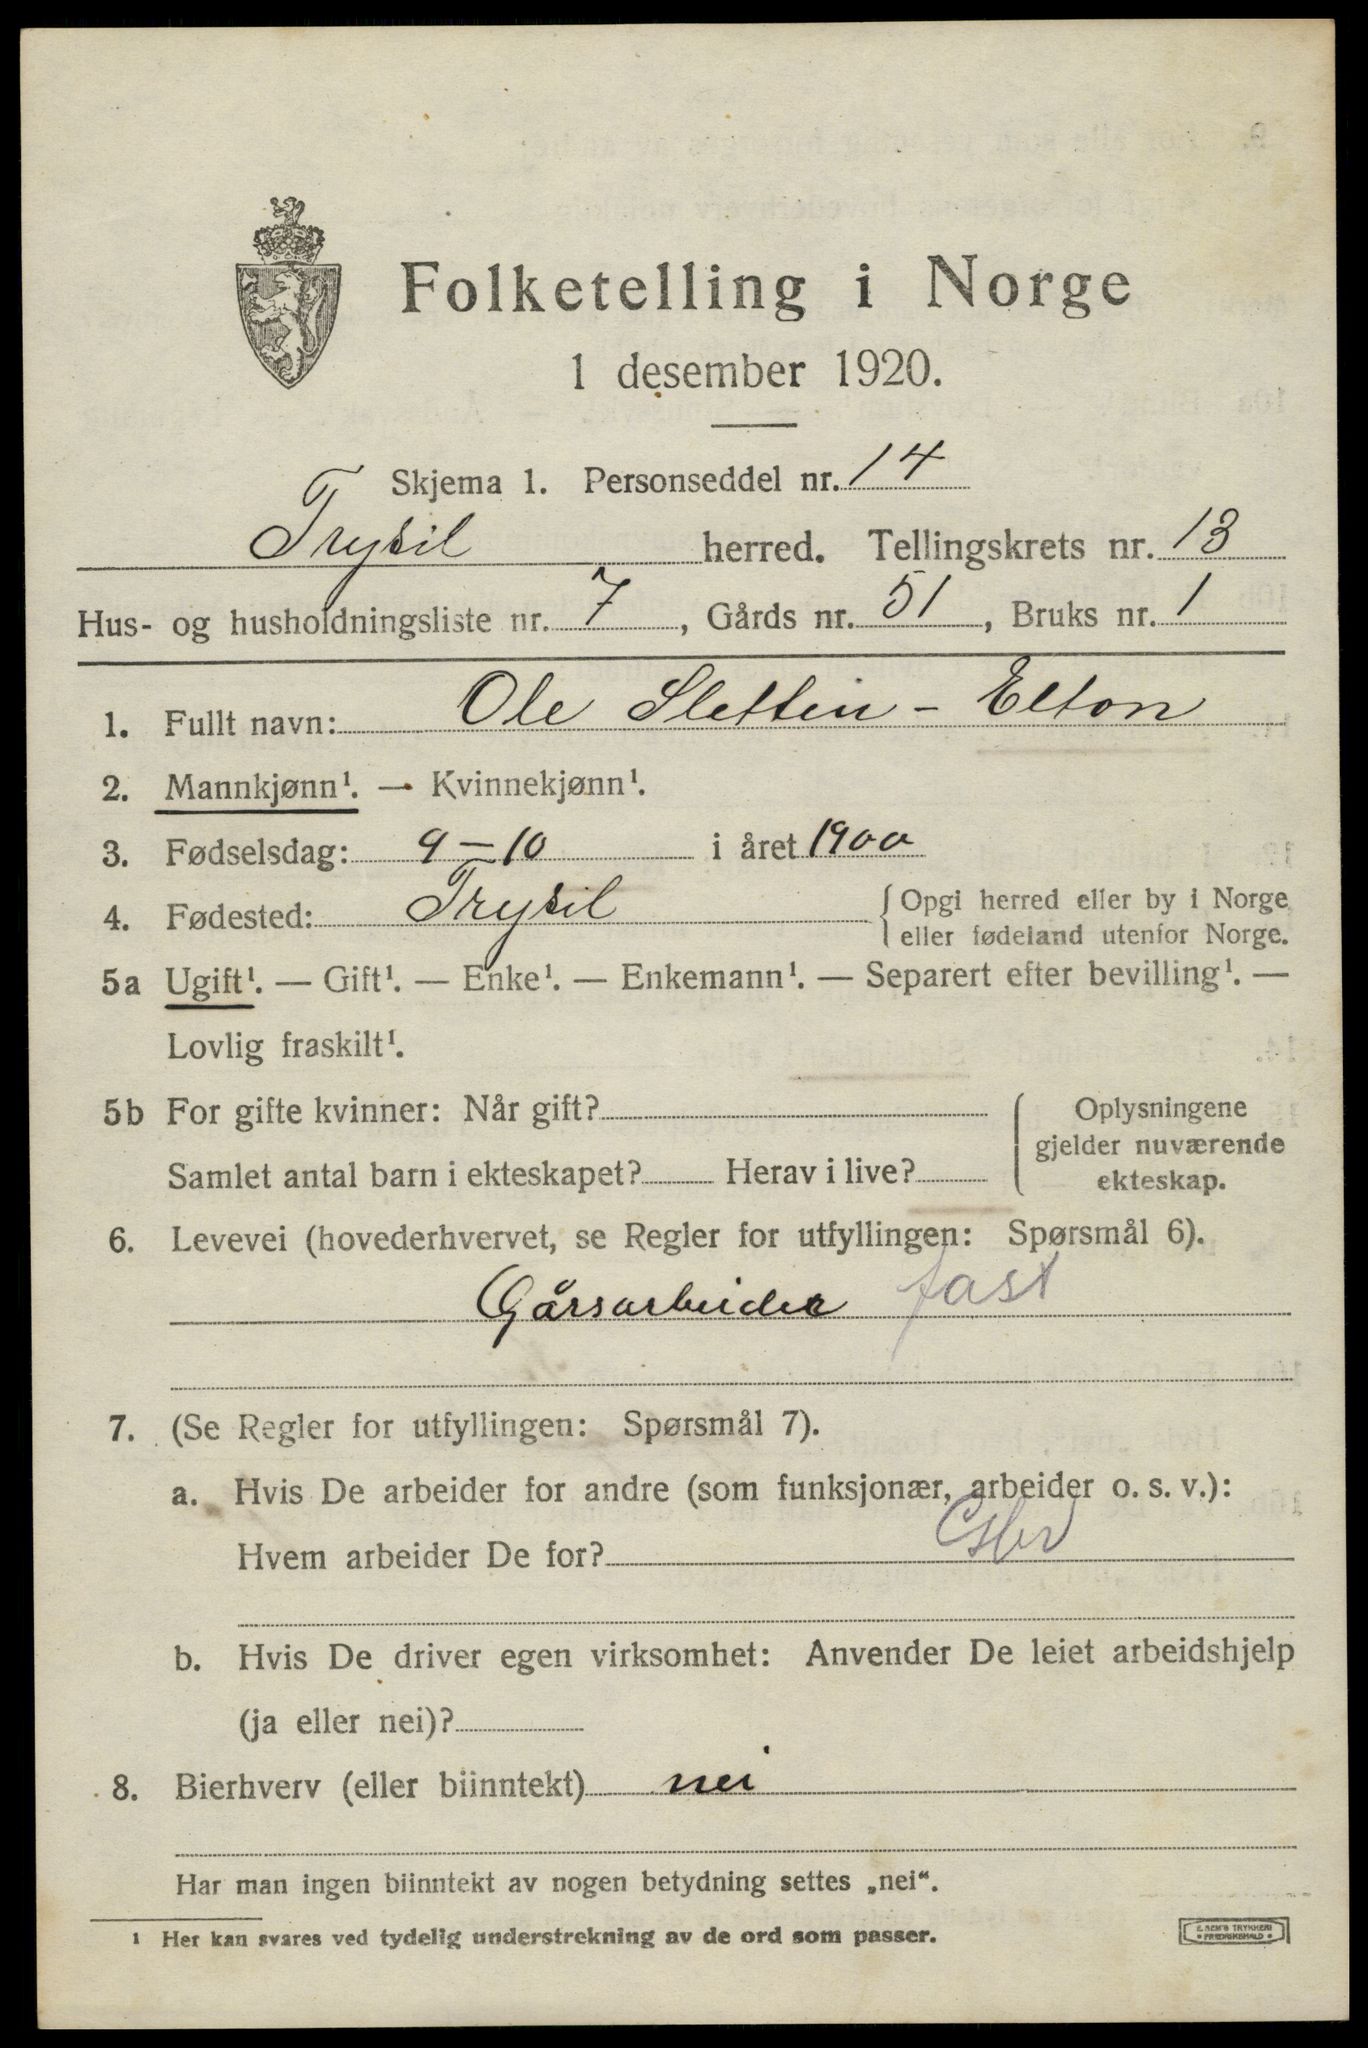 Folketelling i Norge
1 desember 1920.
Skjema 1. Personseddel nr. 14
Trysil herred. Tellingskrets nr. 13
Hus- og husholdningsliste nr. 7, Gårds nr. 51, Bruks nr. 1
1. Fullt navn: Ole Sletten - Elton
2. Mannkjønn¹. — Kvinnekjønn¹.
3. Fødselsdag: 9-10 i året 1900
4. Fødested: Trysil { Opgi herred eller by i Norge
eller fødeland utenfor Norge.
5a Ugift¹. — Gift¹. — Enke¹. — Enkemann¹. — Separert efter bevilling¹. —
Lovlig fraskilt¹.
5b For gifte kvinner: Når gift? Oplysningene
gjelder nuværende
Samlet antal barn i ekteskapet? Herav i live? ekteskap.
6. Levevei (hovederhvervet, se Regler for utfyllingen: Spørsmål 6).
Gårsarbeider fast
7. (Se Regler for utfyllingen: Spørsmål 7).
a. Hvis De arbeider for andre (som funksjonær, arbeider o. s. v.):
Hvem arbeider De for?
b. Hvis De driver egen virksomhet: Anvender De leiet arbeidshjelp
(ja eller nei)?
8. Bierhverv (eller biinntekt) nei
Har man ingen biinntekt av nogen betydning settes „nei“.
¹ Her kan svares ved tydelig understrekning av de ord som passer.
E. SEM'S TRYKKERI
FREDRIKSHALD